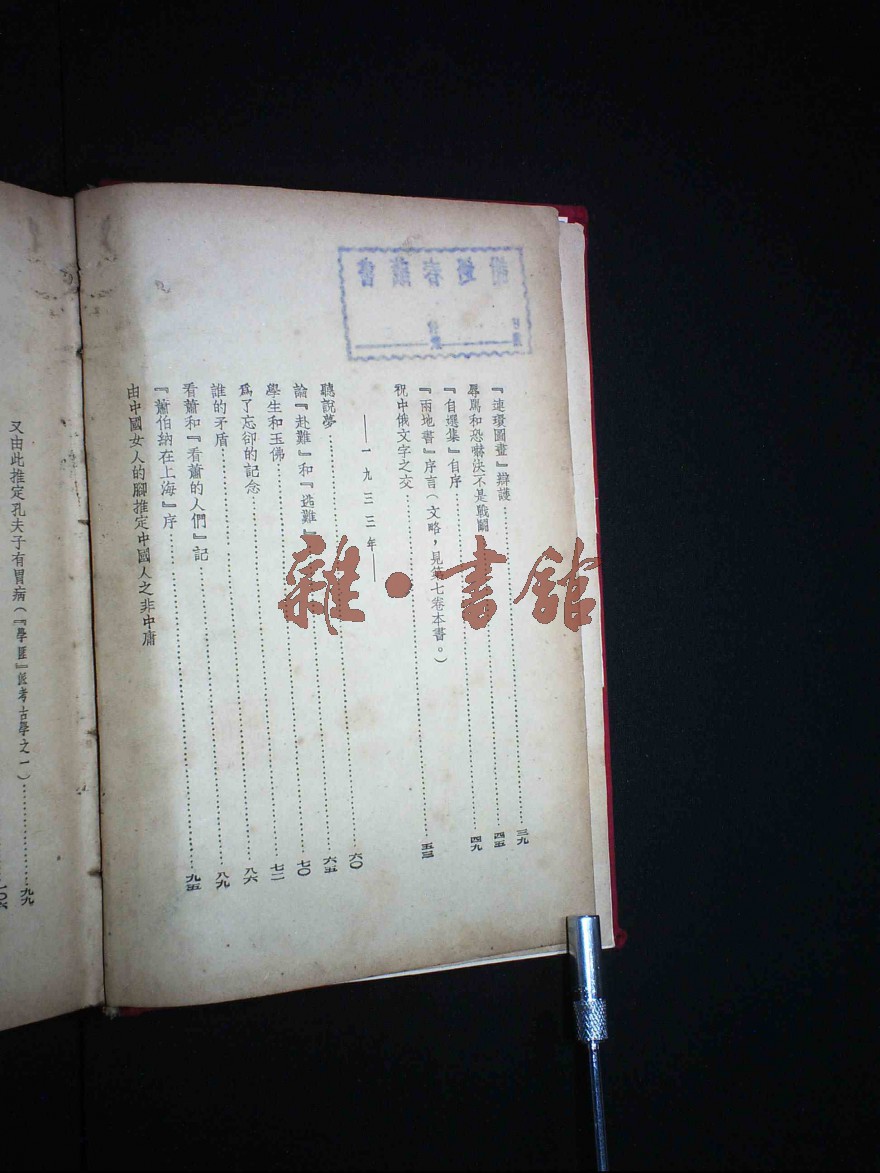 『連環圖畫』辯護……三九
辱罵和恐嚇決不是戰鬭……四五
『自選集』自序……四九
『兩地書』序言(文略,見第七卷本書。)
祝中俄文字之交……五三
——一九三三年——
聽說夢……六〇
論『赴難』和『逃難』……六五
學生和玉佛……七〇
爲了忘卻的記念……七二
誰的矛盾……八六
看蕭和『看蕭的人們』記……八九
『蕭伯納在上海』序……九五
由中國女人的腳推定中國人之非中庸
又由此推定孔夫子有胃病(『學匪』派考古學之一)……九九
一〇六
雜·書館